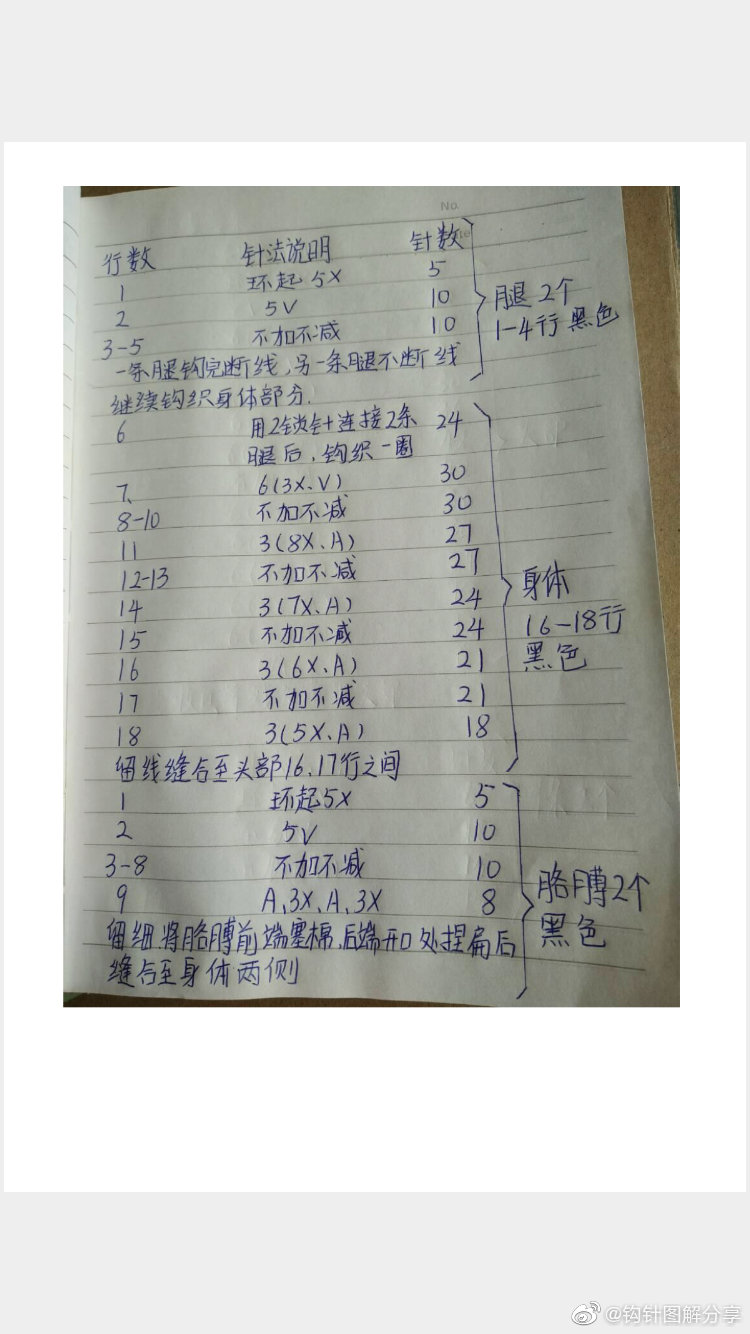 No.
行数 针法说明 针数
1 环起5X 5
2 5V 10
3-5 不加不减 10
腿2个
1-4行黑色
一条腿钩完断线,另一条腿不断线
继续钩织身体部分.
6 用2锁针连接2条 24
腿后,钩织一圈
7、 6(3X、V) 30
8-10 不加不减 30
11 3(8X、A) 27
12-13 不加不减 27
14 3(7X、A) 24
15 不加不减 24
16 3(6X、A) 21
17 不加不减 21
18 3(5X、A) 18
身体
16-18行
黑色
留线缝合至头部16、17行之间
1 环起5X 5
2 5V 10
3-8 不加不减 10
9 A、3X、A、3X 8
胳膊2个
黑色
留细将胳膊前端塞棉、后端开口处捏扁后
缝合至身体两侧
@钩针图解分享